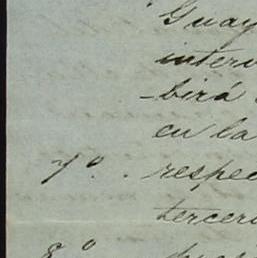 Guay
interv
birá
en la
7º. respec
tercer
8º